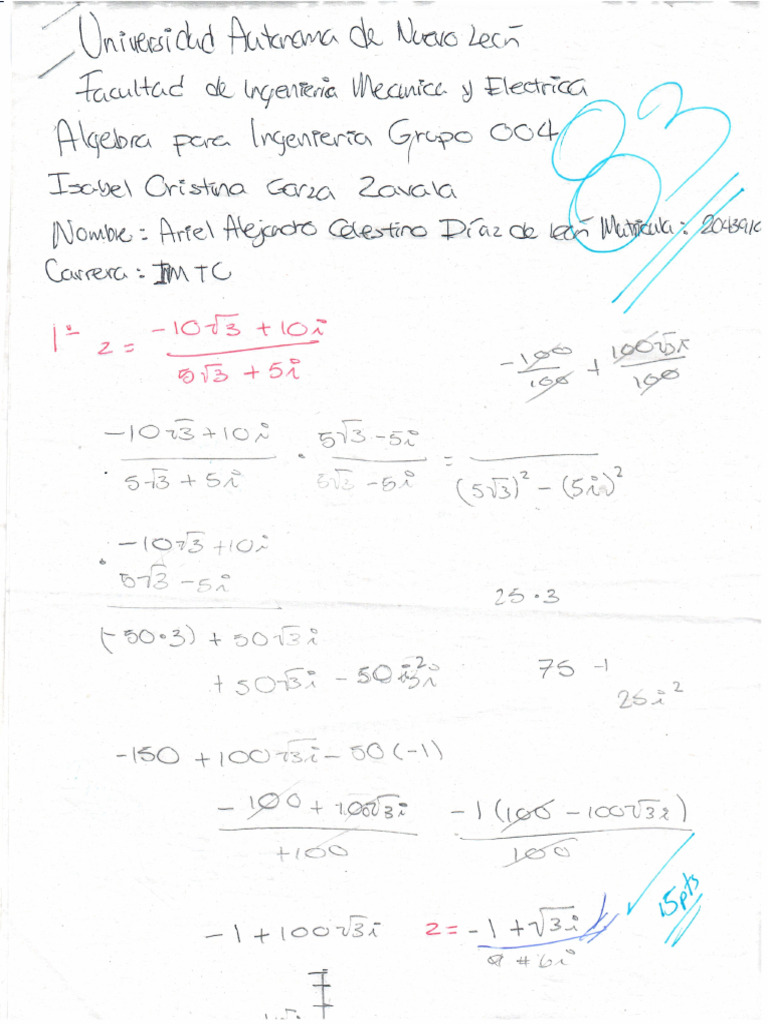 Universidad Autonoma de Nuevo León
Facultad de Ingenieria Mecanica y Electrica
Algebra para Ingenieria Grupo 004
83
Isabel Cristina Garza Zavala
Nombre: Ariel Alejandro Celestino Díaz de León Matricula:
Carrera: IMTC
1- z = (-10√3 + 10i) / (5√3 + 5i)
-100/100 + 100√3i/100
(-10√3 + 10i)/(5√3 + 5i) · (5√3 - 5i)/(5√3 - 5i) = /((5√3)² - (5i)²)
-10√3 + 10i
5√3 - 5i
25·3
(-50·3) + 50√3i
+ 50√3i - 50i²
75 -
25i²
-150 + 100√3i - 50(-1)
(-100 + 100√3i)/+100
-1(100 - 100√3i)/100
15pts
-1 + 100√3i
z = -1 + √3i